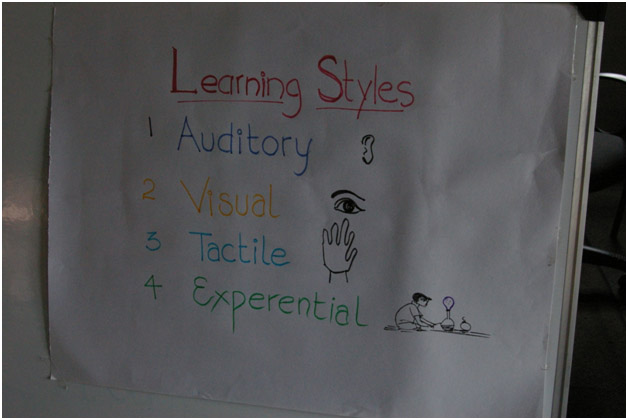 Learning Styles
1 Auditory
2 Visual
3 Tactile
4 Experential